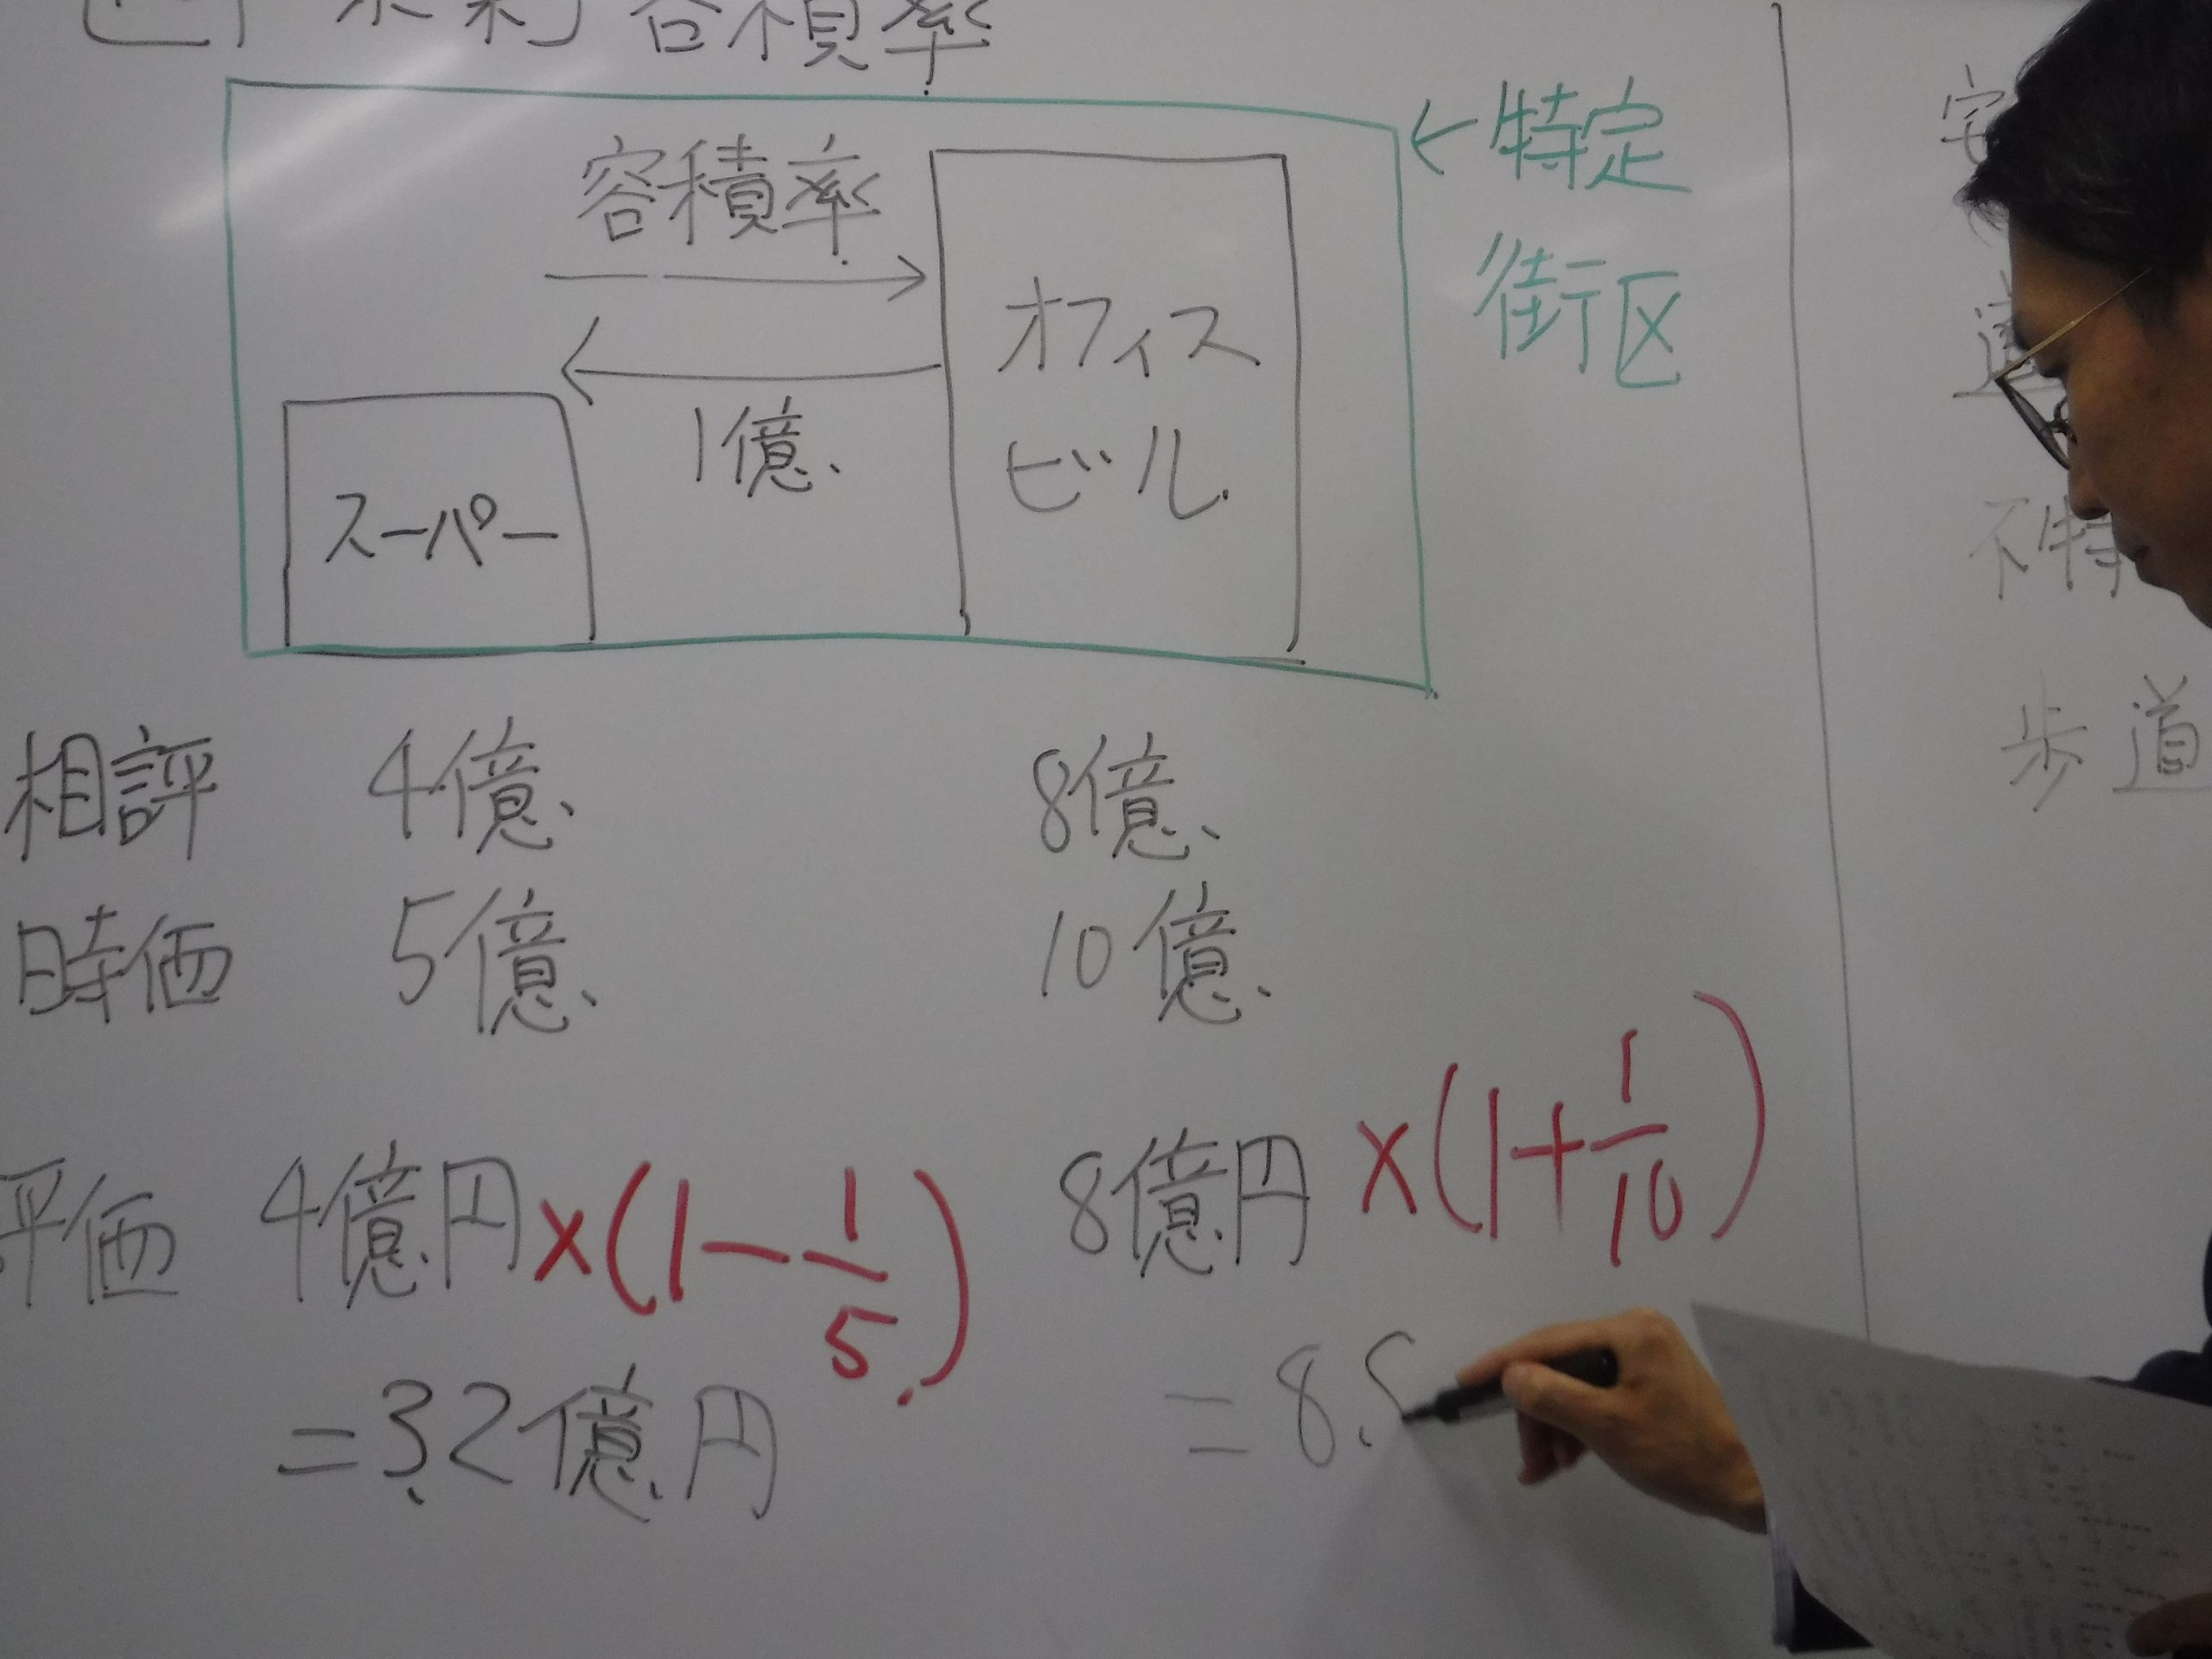 余剰容積率
容積率
←特定
街区
オフィス
ビル
1億
スーパー
相評 4億 8億
時価 5億 10億
評価 4億円×(1-1/5) 8億円×(1+1/10)
=3.2億円 =8.
不特
歩道